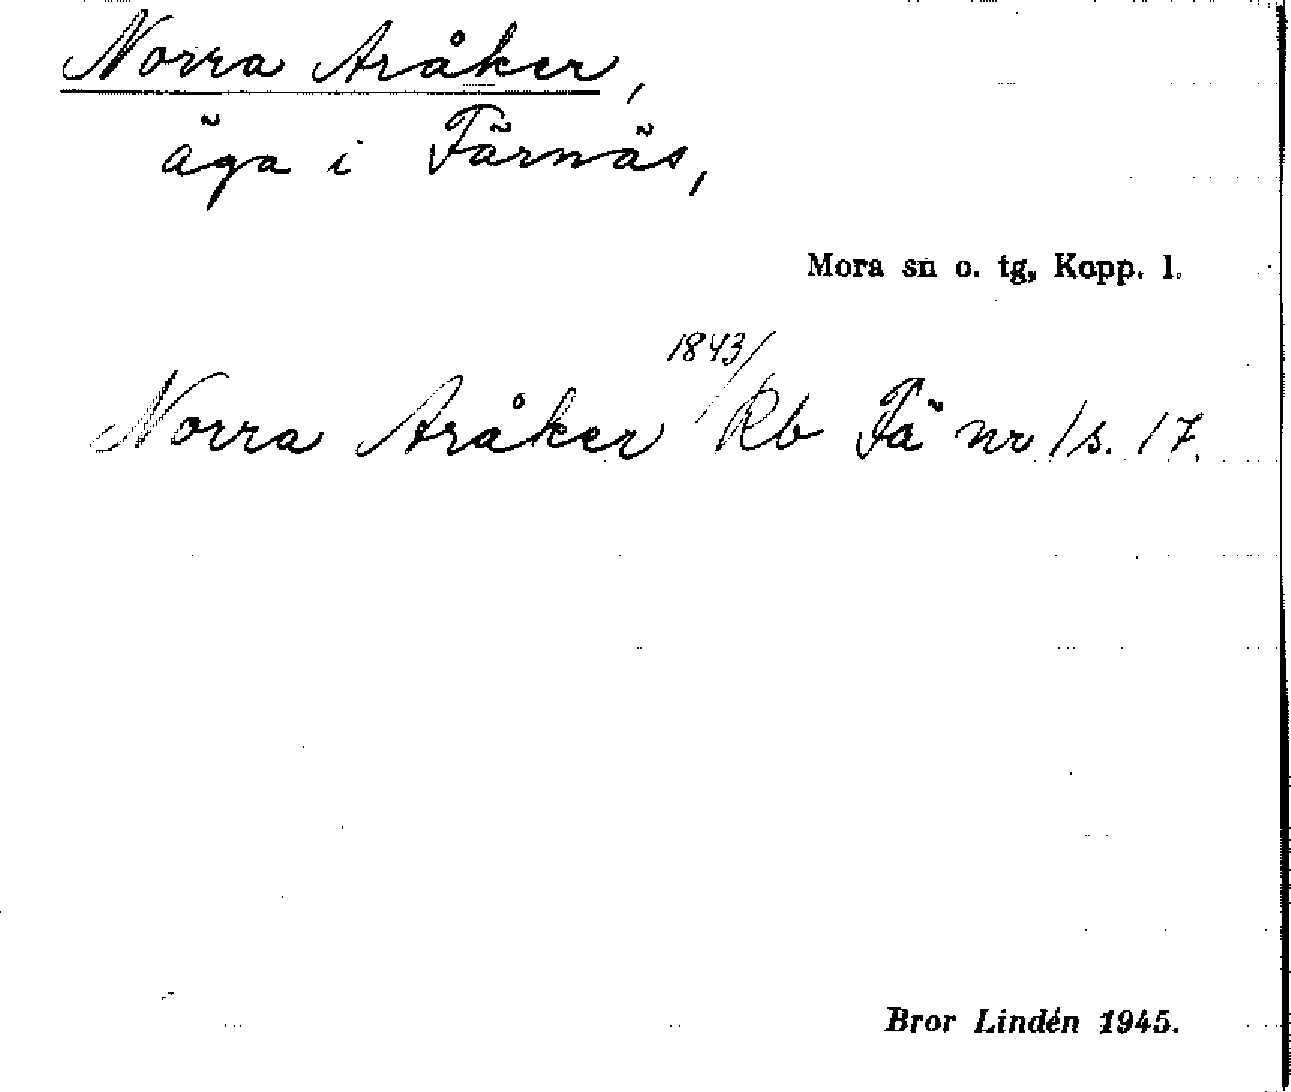 Norra Aråker,
äga i Färnäs,
Mora sn o. tg, Kopp. l.
Norra Aråker 1843/Rb Fä nr 1 s. 17.
Bror Lindén 1945.